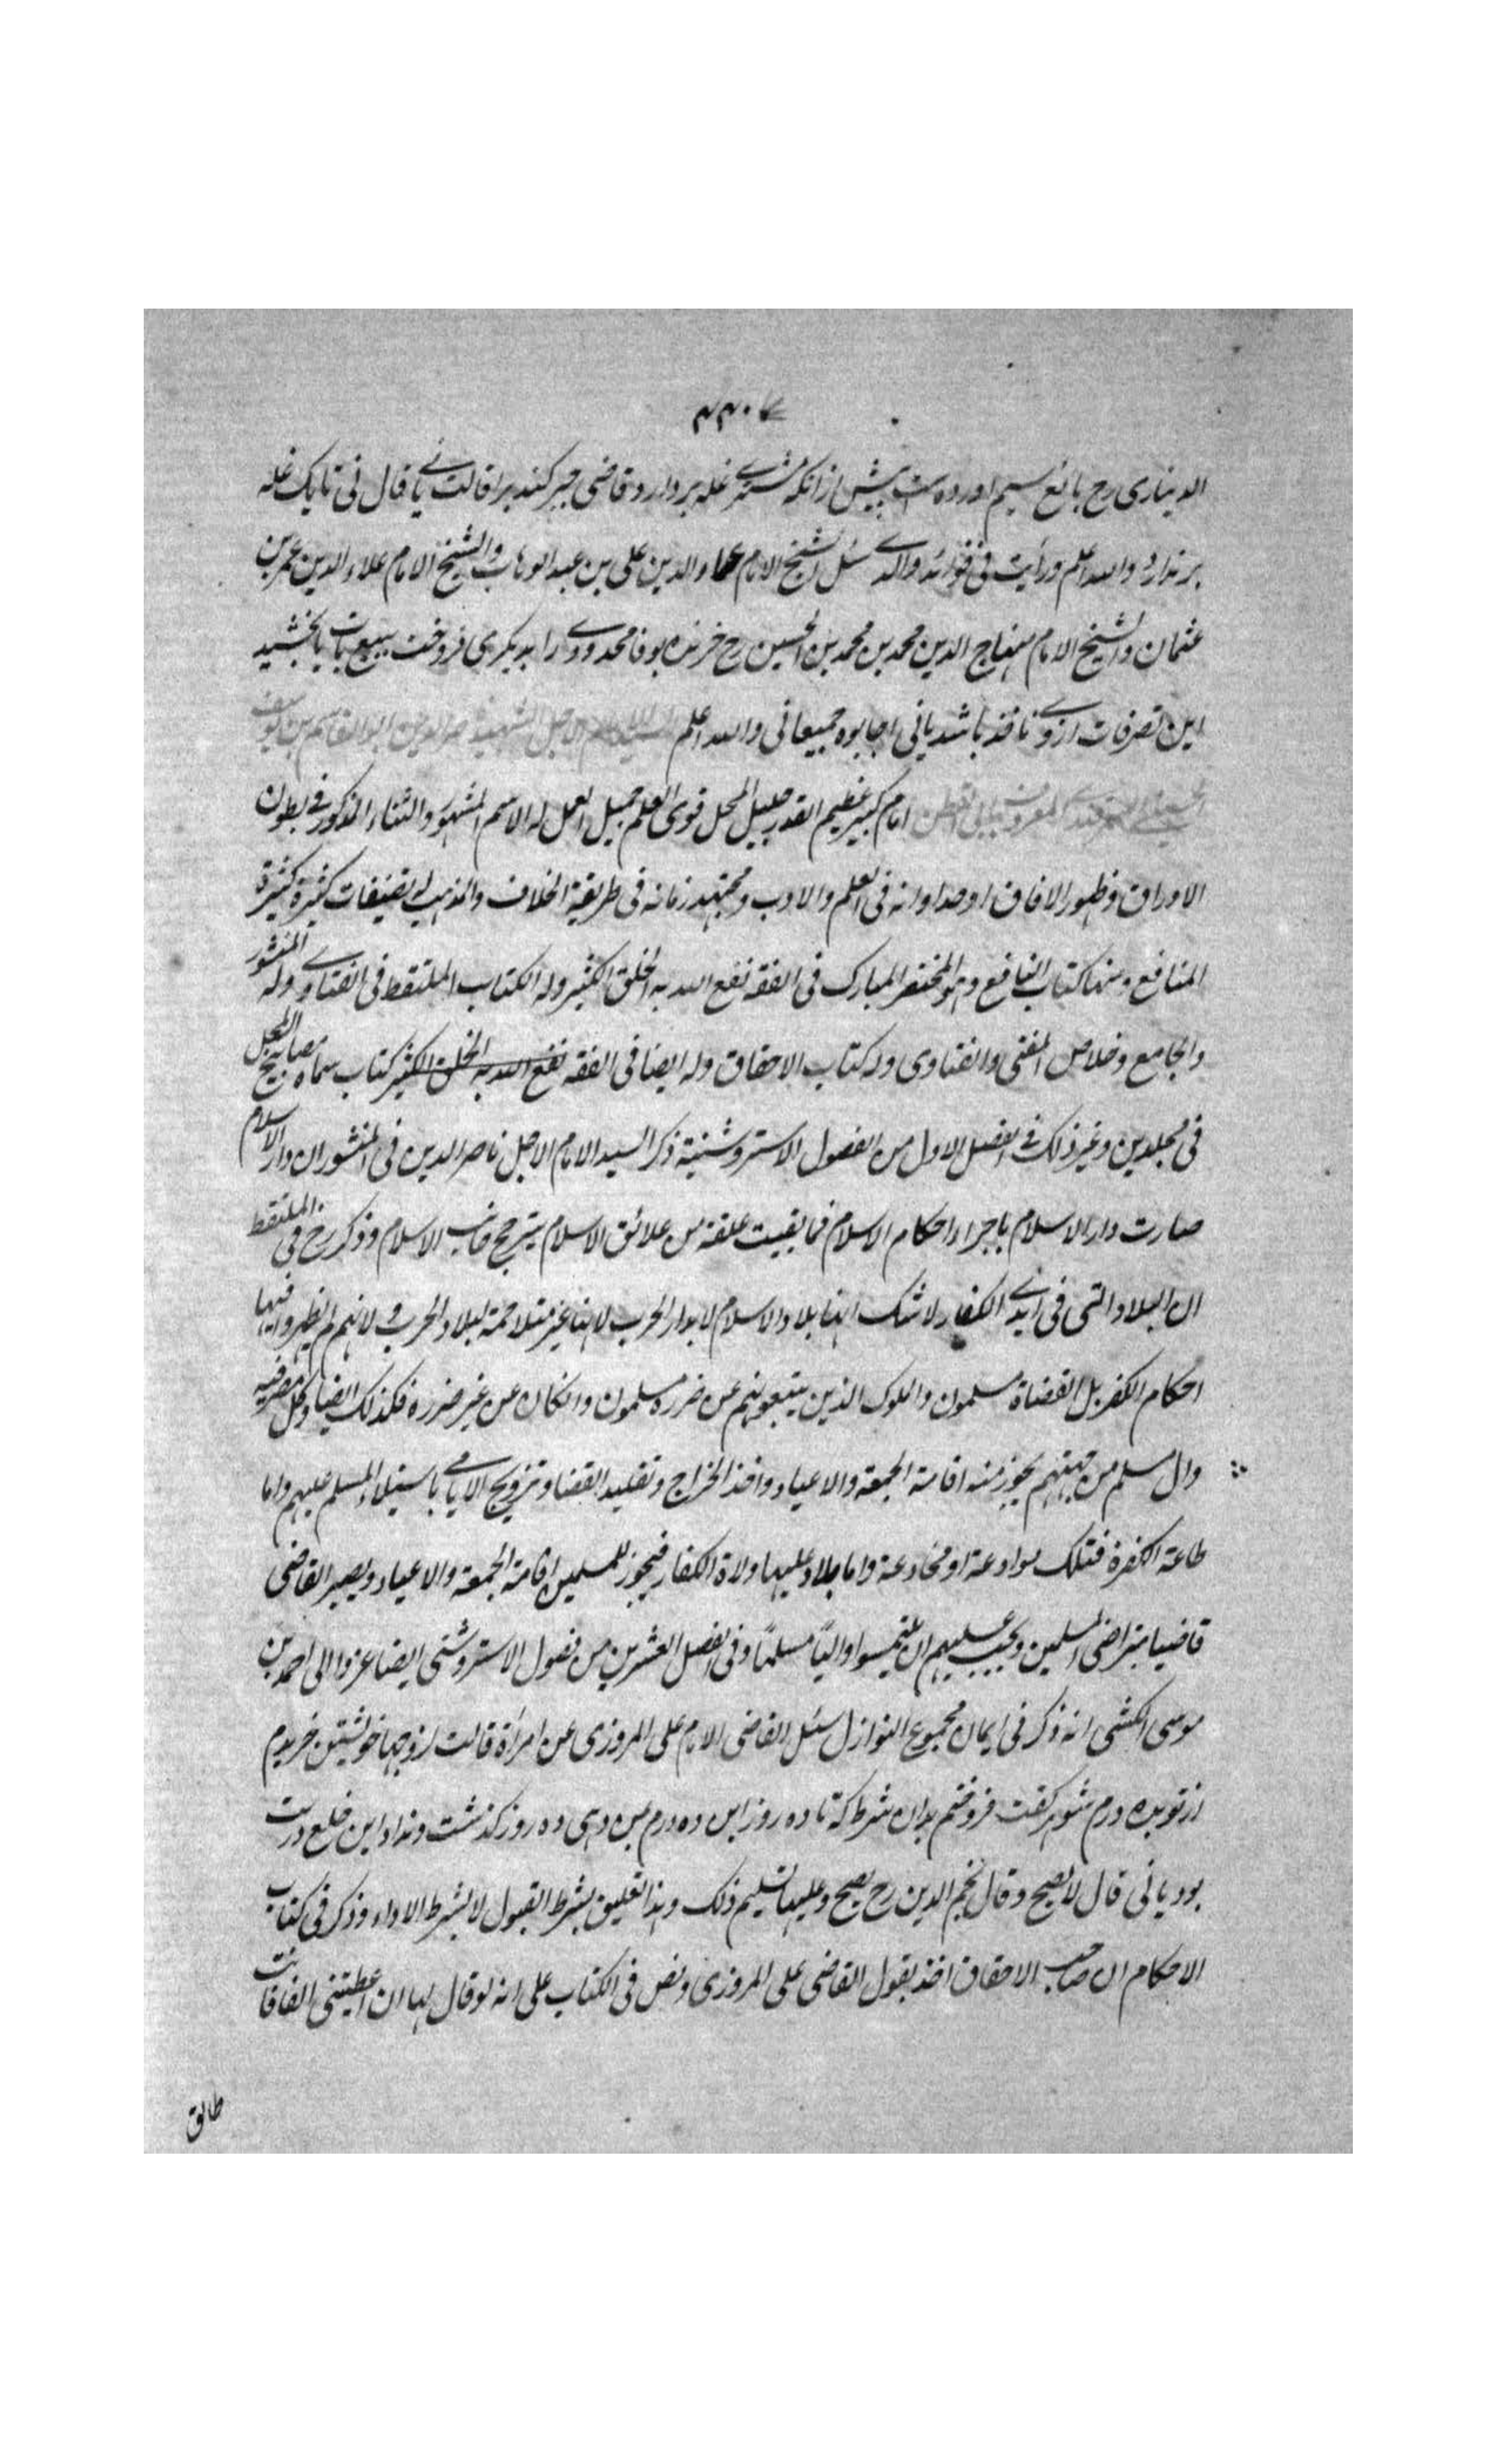 الدیناری رح بائع سیم اورده است پیش ازانکه مشتری غله بردارد قاضی جبر کند بر اقالت نی یا قال نی تا یک غله
برندارد والله اعلم ورأیت فی فوائد والدی سئل الشیخ الامام عماد الدین علی بن عبد الوهاب والشیخ الامام علاء الدین عمر بن
عثمان والشیخ الامام منهاج الدین محمد بن محمد بن الحسین رح خرنده بوفا محدودی را بدیگری فروخت ببیع بات یا بخشید
این تصرفات ازوی نافذ باشد یا نی اجابوه جمیعا نی والله اعلم السید الامام الاجل الشهید ناصر الدین ابو القاسم بن یوسف
الحسینی السمرقندی المعروف بابی القطن امام کبیر عظیم القدر جلیل المحل قوی العلم جمیل العمل له الاسم المشهور والثناء المذکور فی بطون
الاوراق وظهور الافاق اوحد اوانه فی العلم والادب ومجتهد زمانه فی طریقة الخلاف والمذهب له تصنیفات کثیرة کثیرة
المنافع ومنها کتاب النافع وهو المختصر المبارک فی الفقه نفع الله به الخلق الکثیر وله الکتاب الملتقط فی الفتاوی وله المنشور
والجامع وخلاص المفتی والفتاوی وله کتاب الاحقاق وله ایضا فی الفقه نفع الله به الخلق الکثیر کتاب سماه مصابیح السبل
فی مجلدین وغیر ذلک فی الفصل الاول من الفصول الاستروشنیة ذکر السید الامام الاجل ناصر الدین فی المنشور ان دار الاسلام
صارت دار الاسلام باجراء احکام الاسلام فما بقیت علقة من علائق الاسلام یترجح جانب الاسلام وذکر رح فی الملتقط
ان البلاد التی فی ایدی الکفار لا شک انها بلاد الاسلام لا بدار الحرب لانها غیر متلاحمة لبلاد الحرب و لانهم لم یظهروا فیها
احکام الکفر بل القضاة مسلمون والملوک الذین یتبعونهم عن ضرره مسلمون وان کان عن غیر ضررة فکذلک ایضا وکل مصر فیه
وال مسلم من جهتهم یجوز منه اقامة الجمعة والاعیاد واخذ الخراج وتقلید القضا وتزویج الایامی باستیلاء المسلم علیهم واما
طاعة الکفرة فتلک موادعة او مخادعة واما بلاد علیها ولاة الکفار فیجوز للمسلمین اقامة الجمعة والاعیاد ویصیر القاضی
قاضیا بتراضی المسلمین ویجب علیهم ان یلتمسوا والیًا مسلمًا وفی الفصل العشرین من فصول الاستروشنی ایضا عزوا الی احمد بن
موسی الکشی انه ذکر فی ایمان مجموع النوازل سئل القاضی الامام علی المروزی عن امرأة قالت لزوجها خویشتن خریدم
از تو بده درم شوهر کفت فروختم بدان شرط که تا ده روز این ده درم بمن دهی ده روز کذشت ونداد این خلع درست
بود یا نی قال لا یصح وقال نجم الدین رح یصح وعلیها تسلیم ذلک وهذا تعلیق بشرط القبول لا بشرط الاداء وذکر فی کتاب
الاحکام ان صاحب الاحقاق اخذ بقول القاضی علی المروزی ونص فی الکتاب علی انه لو قال لها ان اعطیتنی الفا فانت
طالق